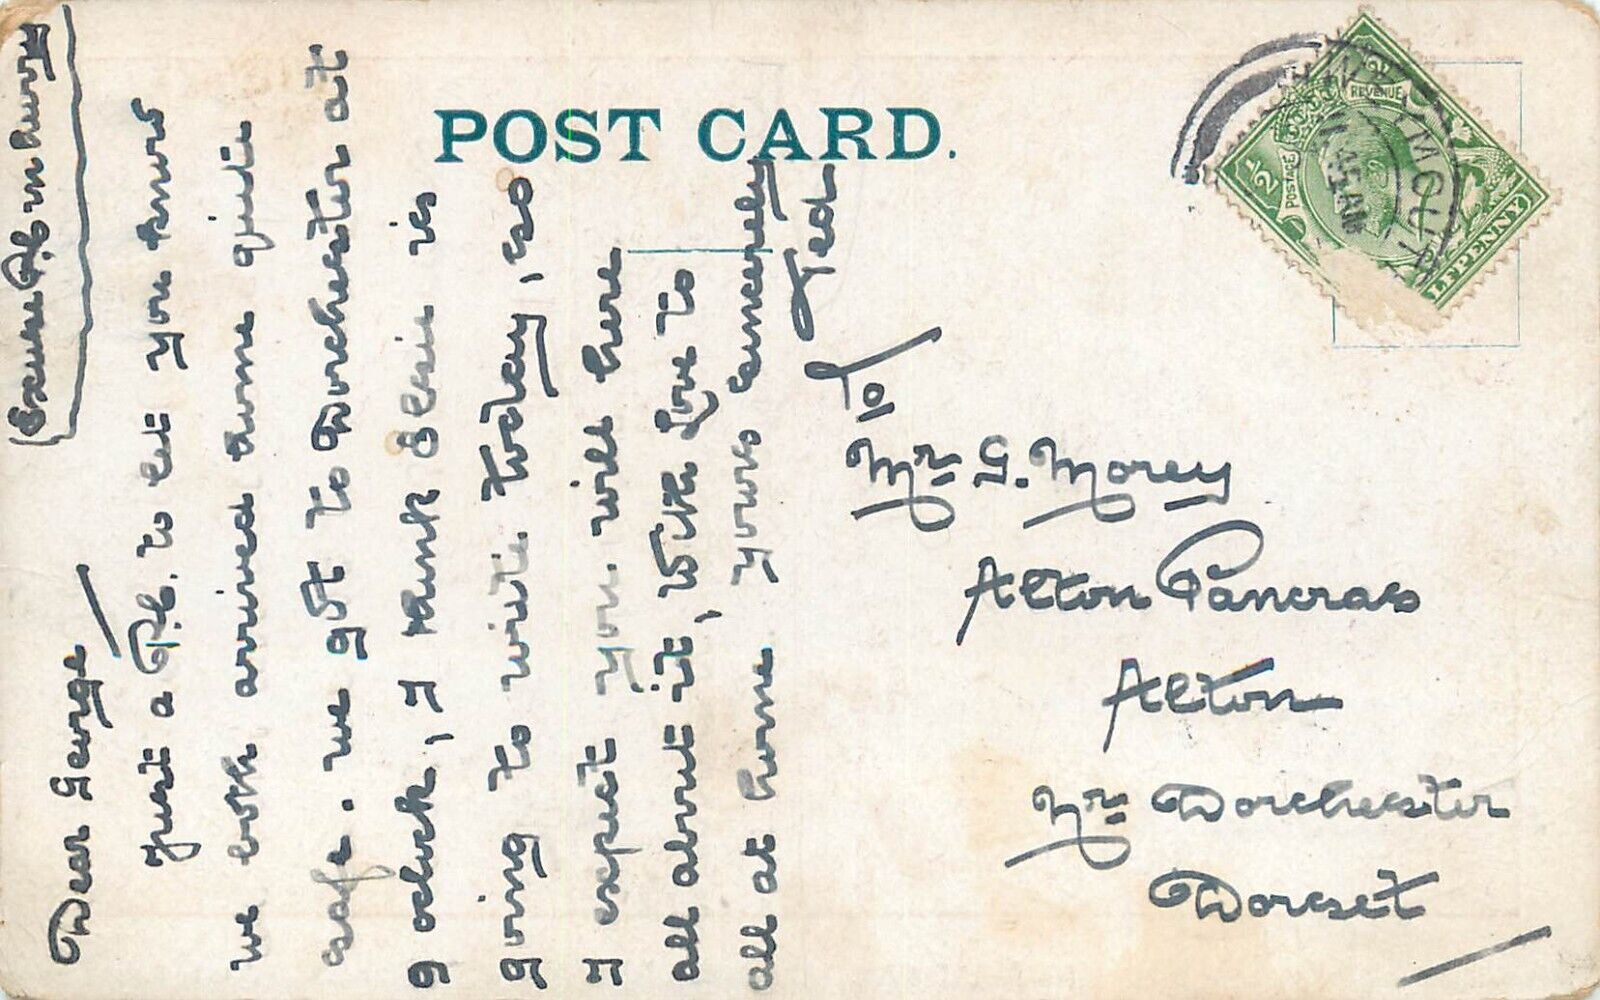 POST CARD.
Excuse P.C. in hurry
Dear George
Just a P.C. to let you know
we both arrived home quite
safe. we got to Dorchester at
9 oclock, I think Elsie is
going to write today, so
I expect you will here
all about it, With Love to
all at home yours sincerely
Ted.
To
Mr. G. Morey
Alton Pancras
Alton
Nr. Dorchester
Dorset
POSTAGE
REVENUE
1/2
1/2
45 AM